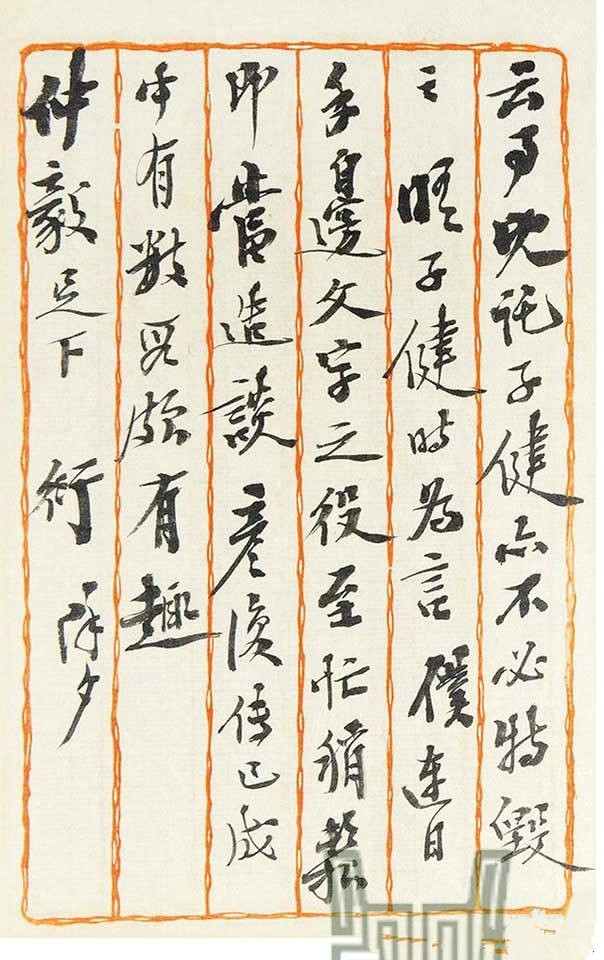 云事既託子健亦不必特毀
之 晤子健時為言 僕連日
手邊文字之役至忙稍鬆
即當造談 彥復傳已成
中有數段頗有趣
仲毅足下 衍 除夕